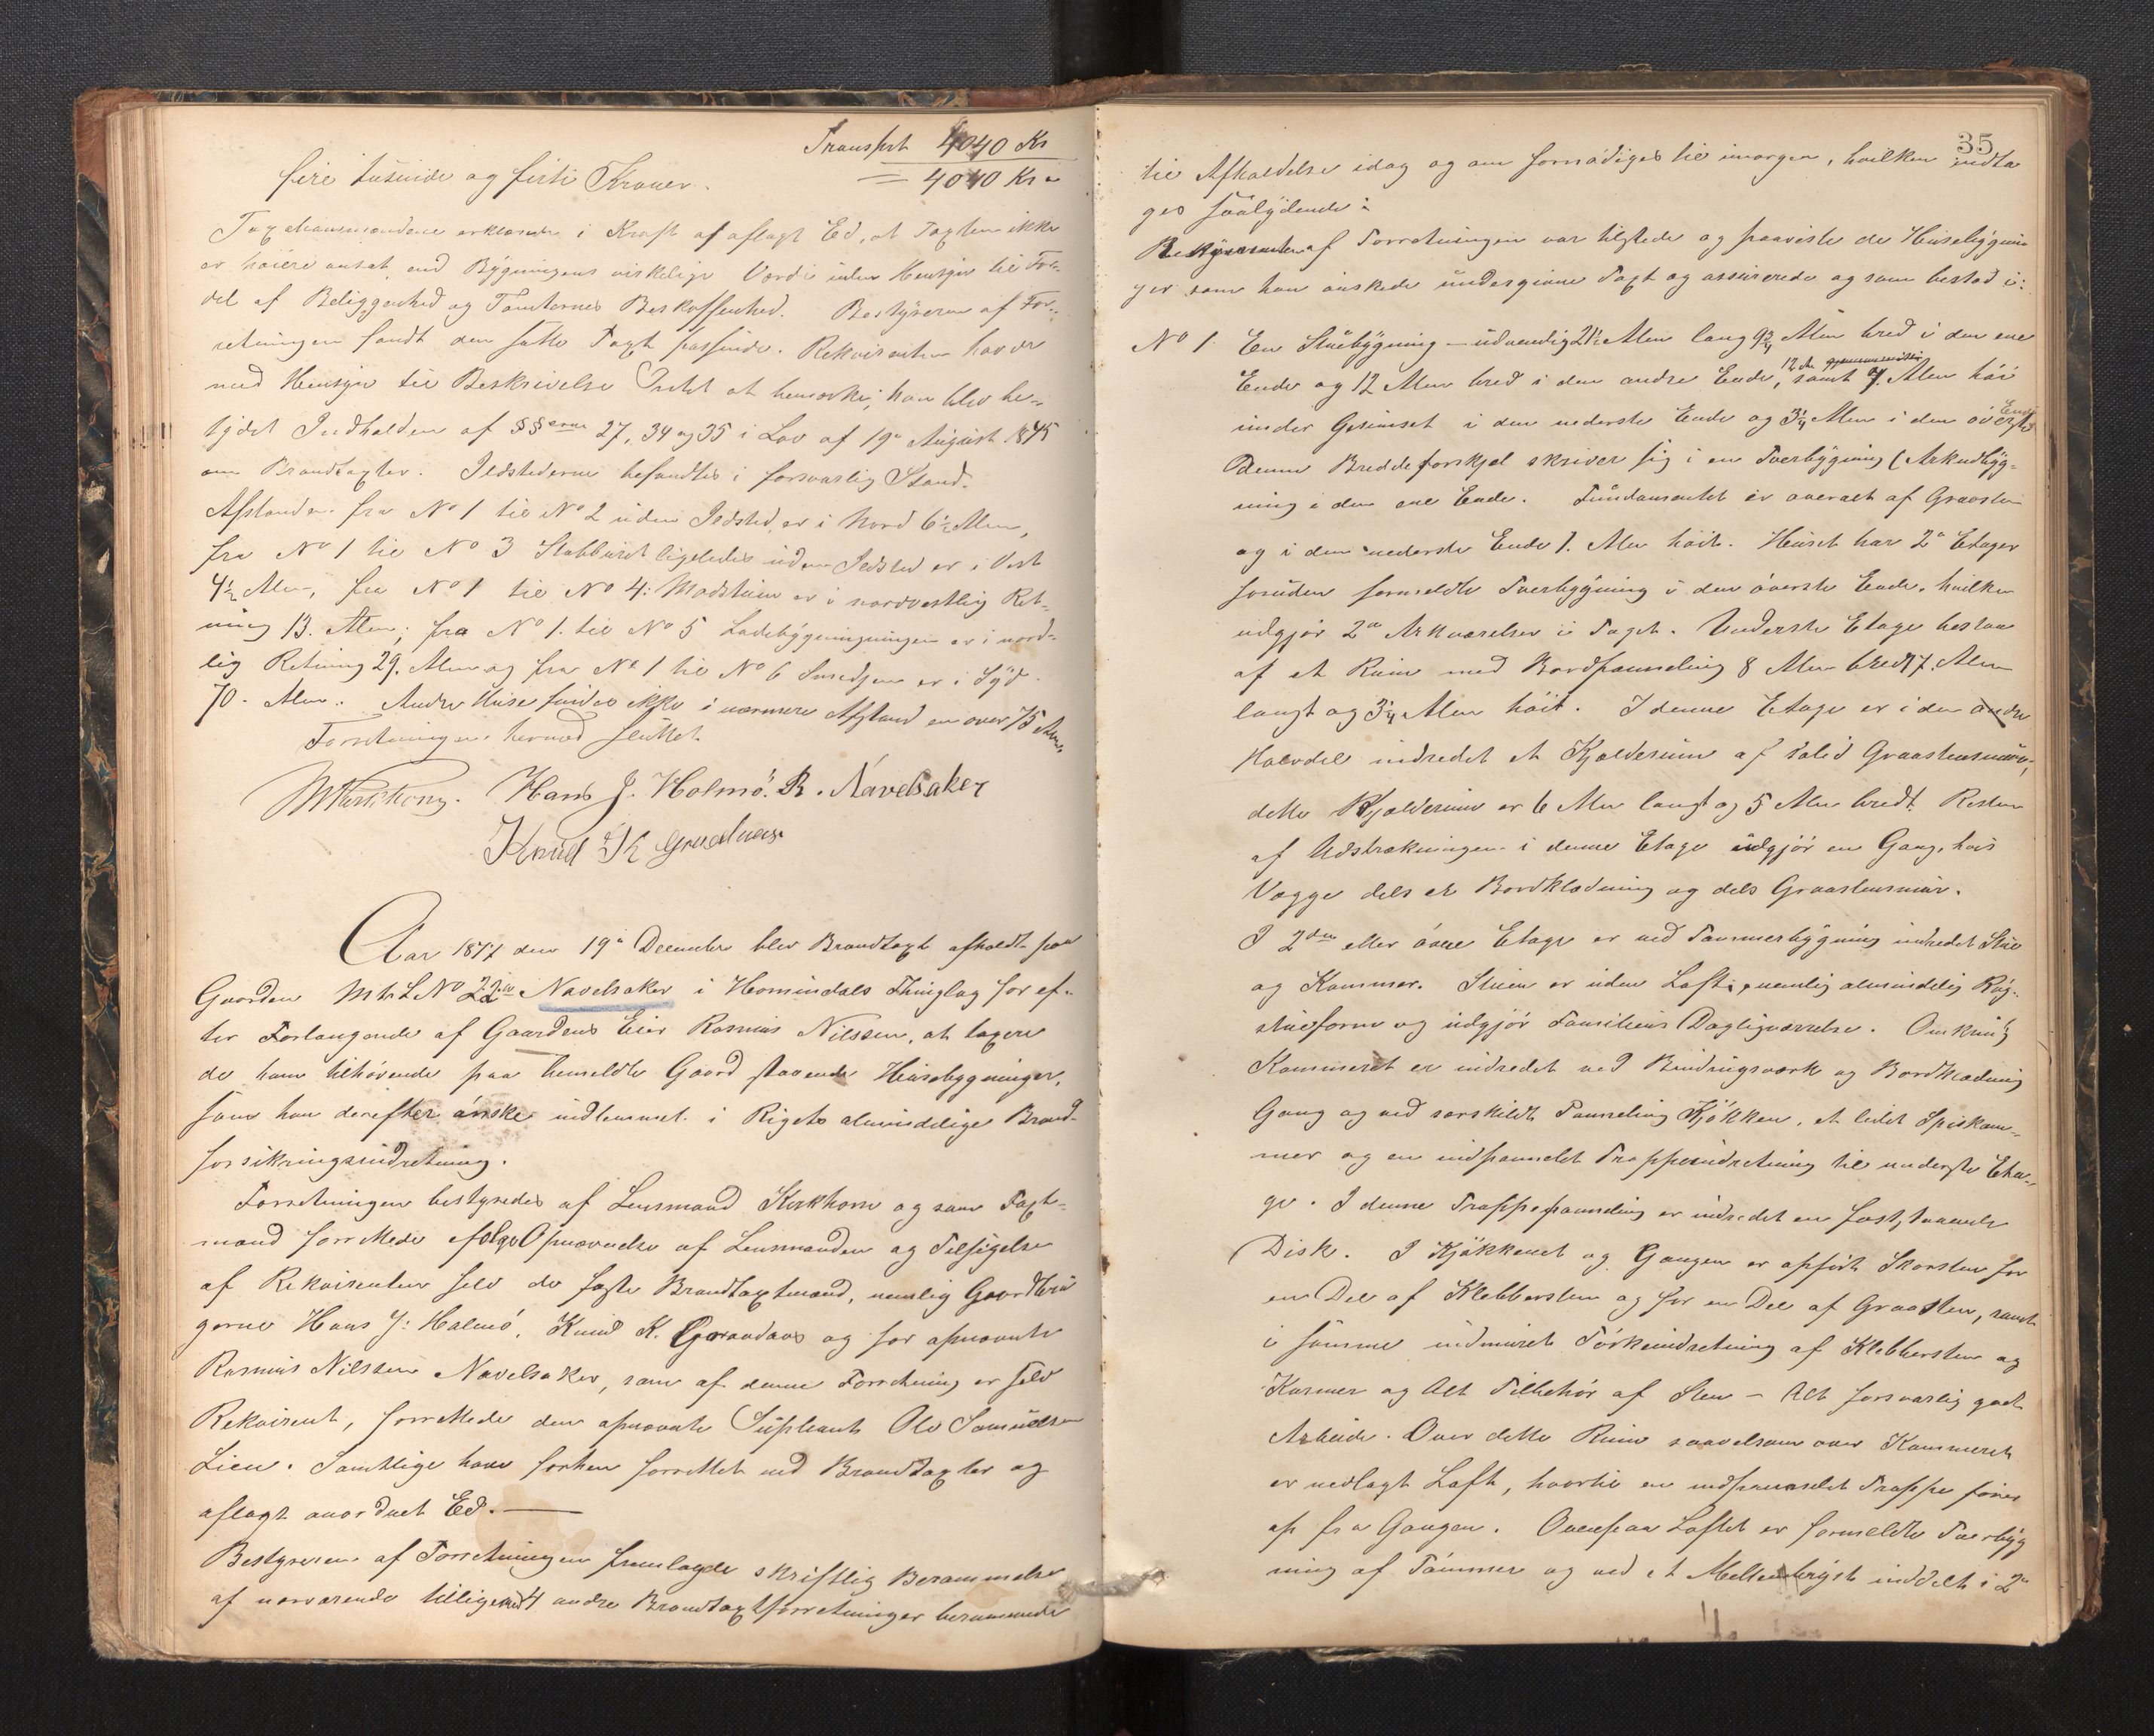 Transport 4040 Kr
fire tusinde og firti Kroner. = 4040 Kr
Taxationsmændene erklærede i Kraft af aflagt Ed, at Taxten ikke
er höiere ansat, end Bygningens virkelige Værdi uden Hensyn til For-
del af Beliggenhed og Tomternes Beskaffenhed. Bestyreren af For-
retningen fandt den satte Taxt passende. Rekvirenten havde
med Hensyn til Beskrivelse Intet at bemærke; han blev be-
tydet Indholden af §§erne 27, 34 og 35 i Lov af 19de August 1845
om Brandtaxter. Ildstederne befandtes i forsvarlig Stand.
Afstanden fra No 1 til No 2 uden Ildsted, er i Nord 6½ Alen,
fra No 1 til No 3 Stabburet ligeledes uden Ildsted er i Vest
4½ Alen, fra No 1 til No 4: Madstuen er i nordvestlig Ret-
ning 13. Alen; fra No 1. til No 5 Ladebygningningen er i nord-
lig Retning 29. Alen og fra No 1 til No 6 Smedjen er i Syd
70. Alen. Andre Huse findes ikke i nærmere Afstand en over 75 Alen.
Forretningen hermed sluttet
Kirkhorn. Hans J. Holmö. R. Navelsaker
Knud K Grodaas
Aar 1877 den 19de December blev Brandtaxt afholdt paa
Gaarden Mtr. L No 22 Navelsaker i Hornindals Thinglag for ef-
ter Forlangende af Gaardens Eier Rasmus Nilssen, at taxere
de ham tilhörende paa bemeldte Gaard staaende Husebygninger,
som han derefter önske indlemmet i Rigets almindelige Brand-
forsikringsindretning.
Forretningen bestyredes af Lensmand Kirkhorn og som Taxt-
mænd forrettede ifölge Opnævnelse af Lensmanden og Tilsigelse
af Rekvirenten selv de faste Brandtaxtmænd, nemlig Gaardbru
gerne Hans J: Holmö, Knud K. Grodaas og for opnævnte
Rasmus Nilssen Navelsaker, som af denne Forretning er selv
Rekvirent, forrettede den opnævnte Supleant Ole Samuelsen
Lien. Samtlige have forhen forrettet ved Brandtaxter og
aflagt anordnet Ed.
Bestyreren af Forretningen fremlagde skriftlig Berammelse
af nærværende tilligemed 4 andre Brandtaxtforretninger berammede
35
til Afholdelse idag og om fornödiges til imorgen, hvilken indta
ges saalydende:
Rekvirenten af Forretningen var tilstede og paaviste de Husebygnin
ger som han önskede undergivne Taxt og assurerede og som bestod i:
No 1 En Stuebygning – udvendig 21½ Alen lang 9¾ Alen bred i den ene
Ende og 12 Alen bred i den andre Ende, samt 7. Alen höi
under Gesimset i den nederste Ende og 3¼ Alen i den överste Ende
denne Breddeforskjel skriver sig i en Tverbygning (Arkudbyg-
ning i den ene Ende. Fundamentet er overalt af Graasten
og i den nederste Ende 1. Alen höit. Huset har 2de Etager
foruden formeldte Tverbygning i den överste Ende, hvilken
udgjör 2de Arkværelser i Taget. Underste Etage bestaar
af et Rum med Bordpanneling 8 Alen bred 7. Alen
langt og 3¼ Alen höit. I denne Etage er i den andre
Halvdel indredet et Kjælderrum af solid Graastensmur,
dette Kjælderrum er 6 Alen langt og 5 Alen bredt Resten
af Udstrækningen i denne Etage udgjör en Gang, hvis
Vægge dels er Bordklædning og dels Graastensmur.
I 2den eller övre Etage er ved Tømmerbygning indredet Stue
og Kammer. Stuen er uden Loft, nemlig almindelig Røg-
stueform og udgjör Familiens Dagligværelse. Omkring
Kammeret er indredet ved Bindingsværk og Bordklædning
Gang og ved særskildt Panneling Kjökken, et lidet Spiskam-
mer og en indpannelet Trappeindretning til underste Eta-
ge. I denne Trappepanneling er indredet en faststaaende
Disk. I Kjökkenet og Gangen er opfört Skorsten for
en Del af Klebbersten og for en Del af Graasten, samt
i samme indmuret Törkeindretning af Klebbersten og
Karmer og Alt Tilbehör af Sten – Alt forsvarlig godt
Arbeide. Over dette Rum saavelsom over Kammeret
er nedlagt Loft, hvortil en indpannelet Trappe förer
op fra Gangen. Ovenpaa Loftet er formeldte Tverbyg
ning af Tömmer og ved et Mellembryst inddelt i 2de